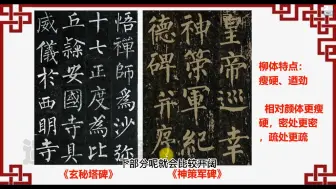 悟禪師為沙弥
十七正度為比
丘隸安國寺具
威儀於西明寺
皇帝巡幸
神策軍紀
德碑并序
柳体特点：
瘦硬、遒劲
相对颜体更瘦
硬，密处更密
，疏处更疏
下部分呢就会比较开阔
《玄秘塔碑》
《神策军碑》